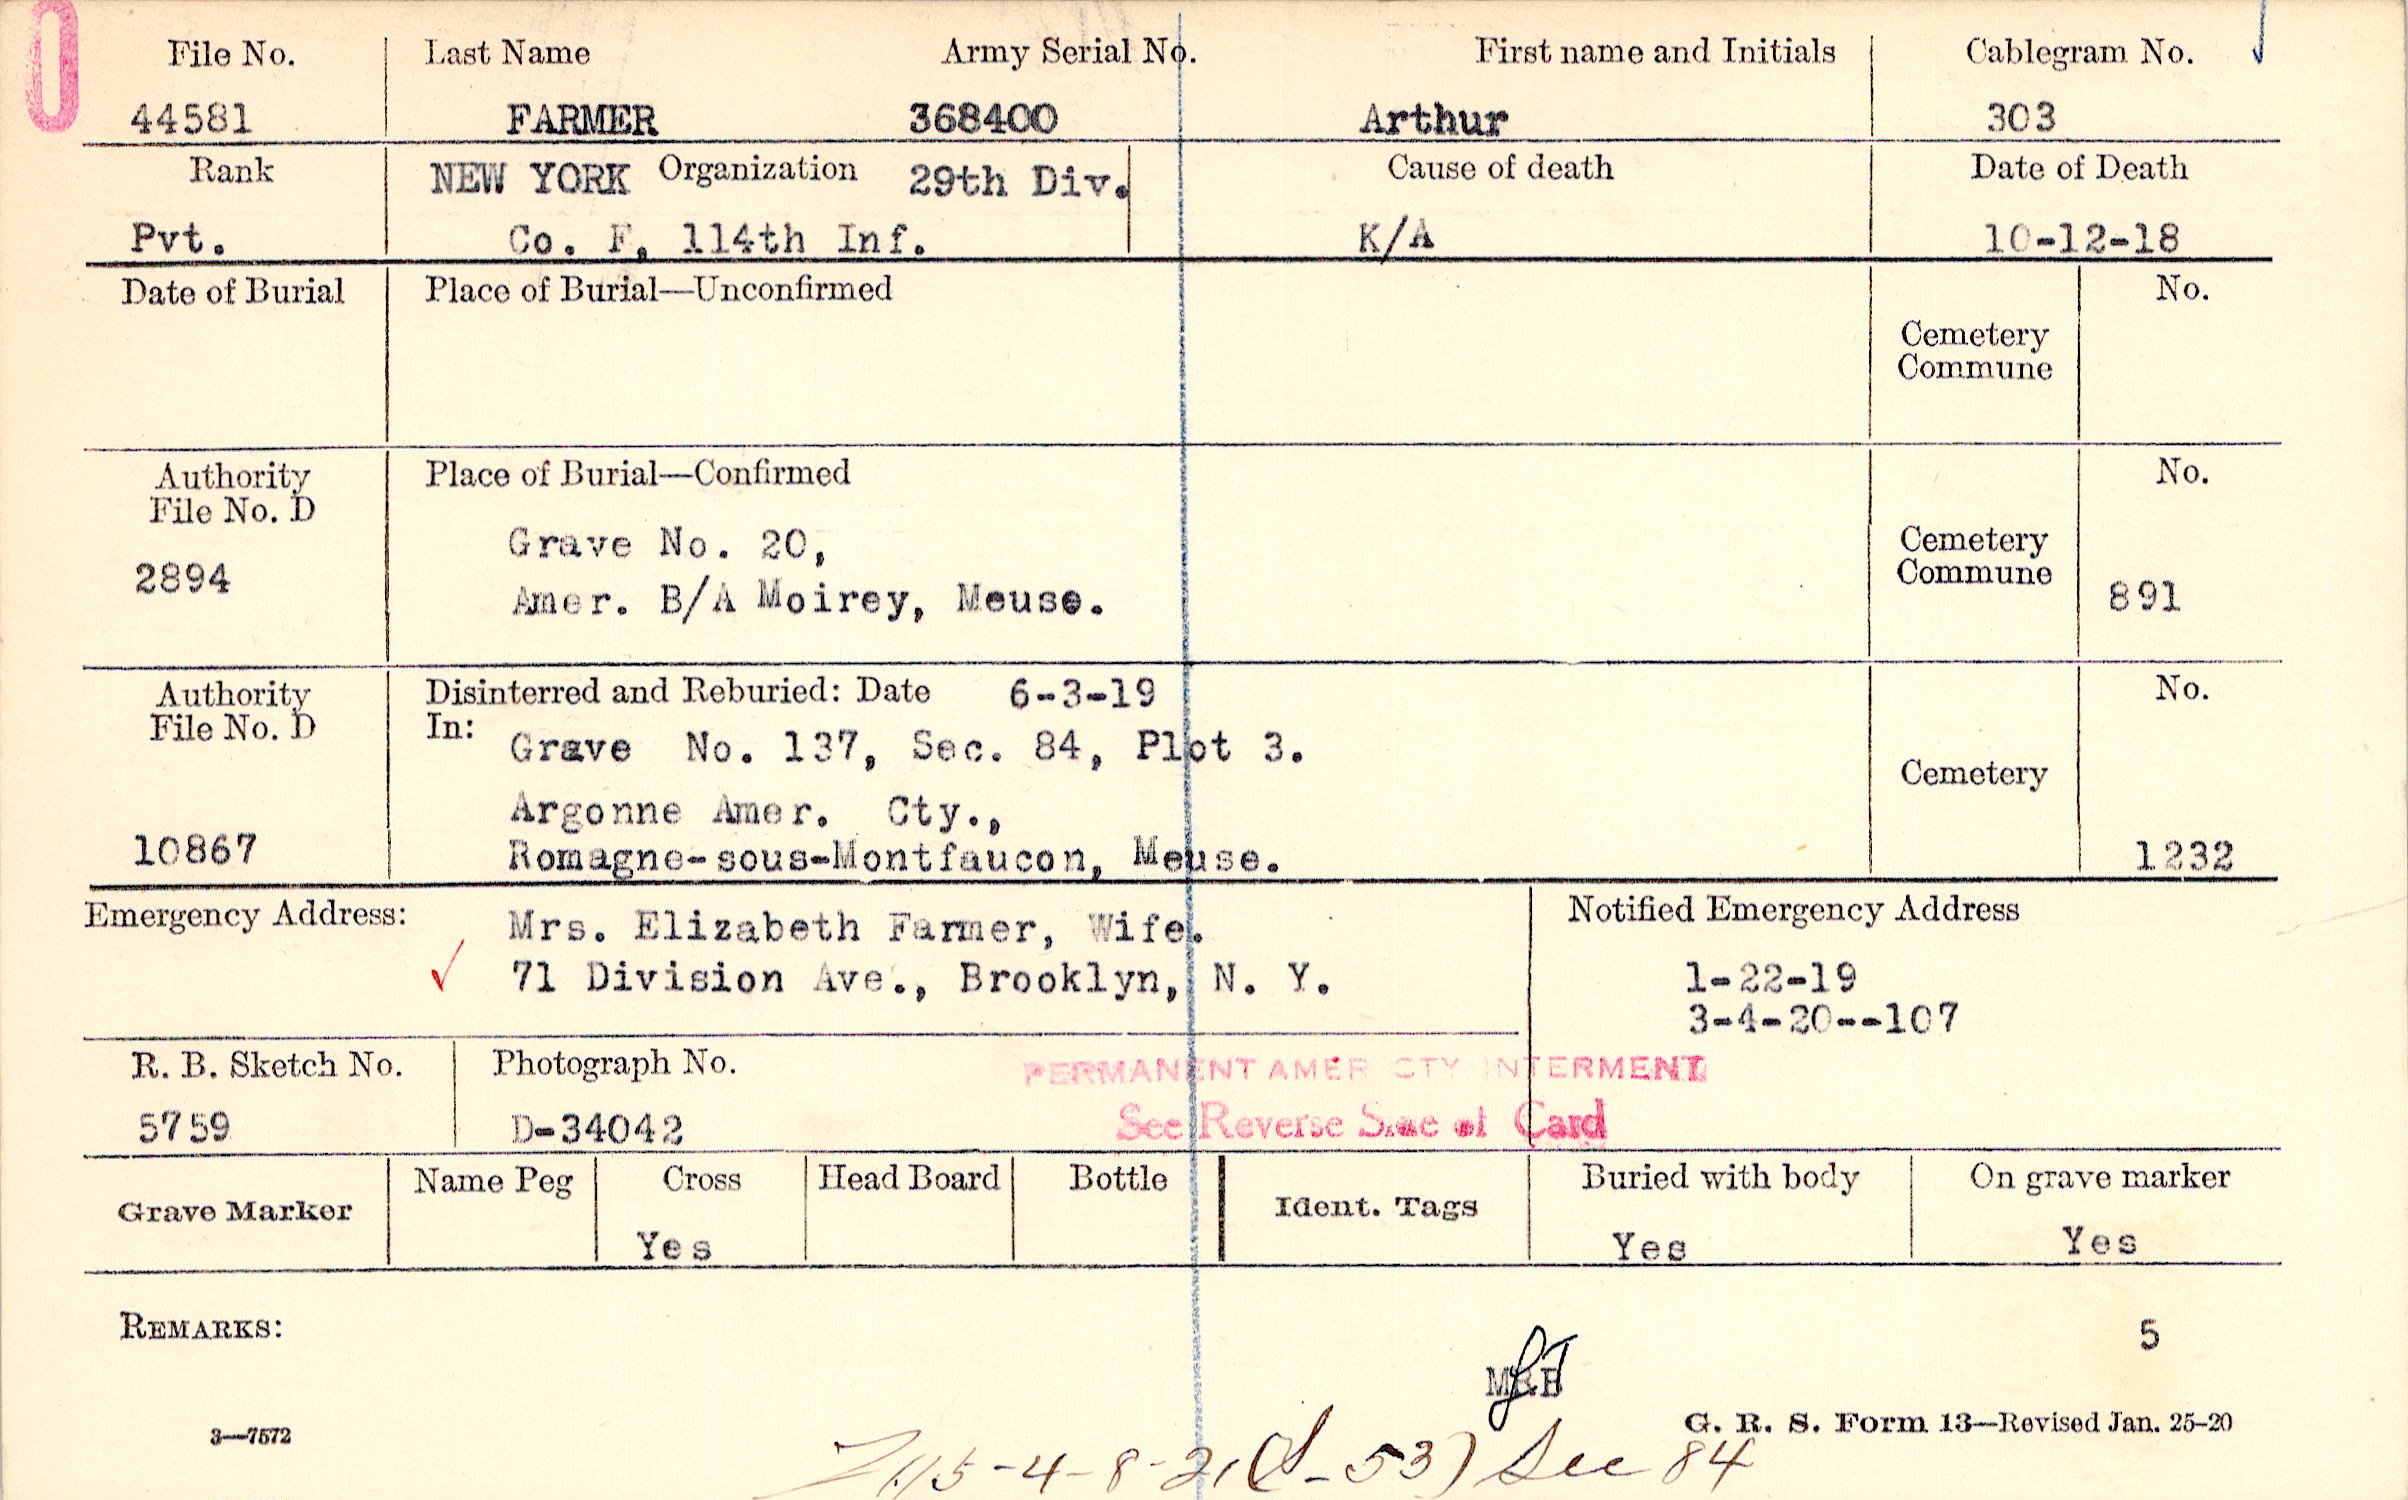 0
File No. Last Name Army Serial No. First name and Initials Cablegram No.
44581 FARMER 368400 Arthur 303
Rank NEW YORK Organization 29th Div. Cause of death Date of Death
Pvt. Co. F, 114th Inf. K/A 10-12-18
Date of Burial Place of Burial—Unconfirmed No.
Cemetery
Commune
Authority Place of Burial—Confirmed No.
File No. D
Grave No. 20, Cemetery
2894 Commune
Amer. B/A Moirey, Meuse. 891
Authority Disinterred and Reburied: Date 6-3-19 No.
File No. D In:
Grave No. 137, Sec. 84, Plot 3.
Cemetery
Argonne Amer. Cty.,
10867 Romagne-sous-Montfaucon, Meuse. 1232
Emergency Address: Mrs. Elizabeth Farmer, Wife. Notified Emergency Address
71 Division Ave., Brooklyn, N. Y. 1-22-19
3-4-20--107
R. B. Sketch No. Photograph No. PERMANENT AMER CTY INTERMENT
5759 D-34042 See Reverse Side of Card
Name Peg Cross Head Board Bottle Buried with body On grave marker
Grave Marker Ident. Tags
Yes Yes Yes
REMARKS: 5
G. R. S. Form 13—Revised Jan. 25-20
3—7572
-4-8-21 (S-53) Sec 84